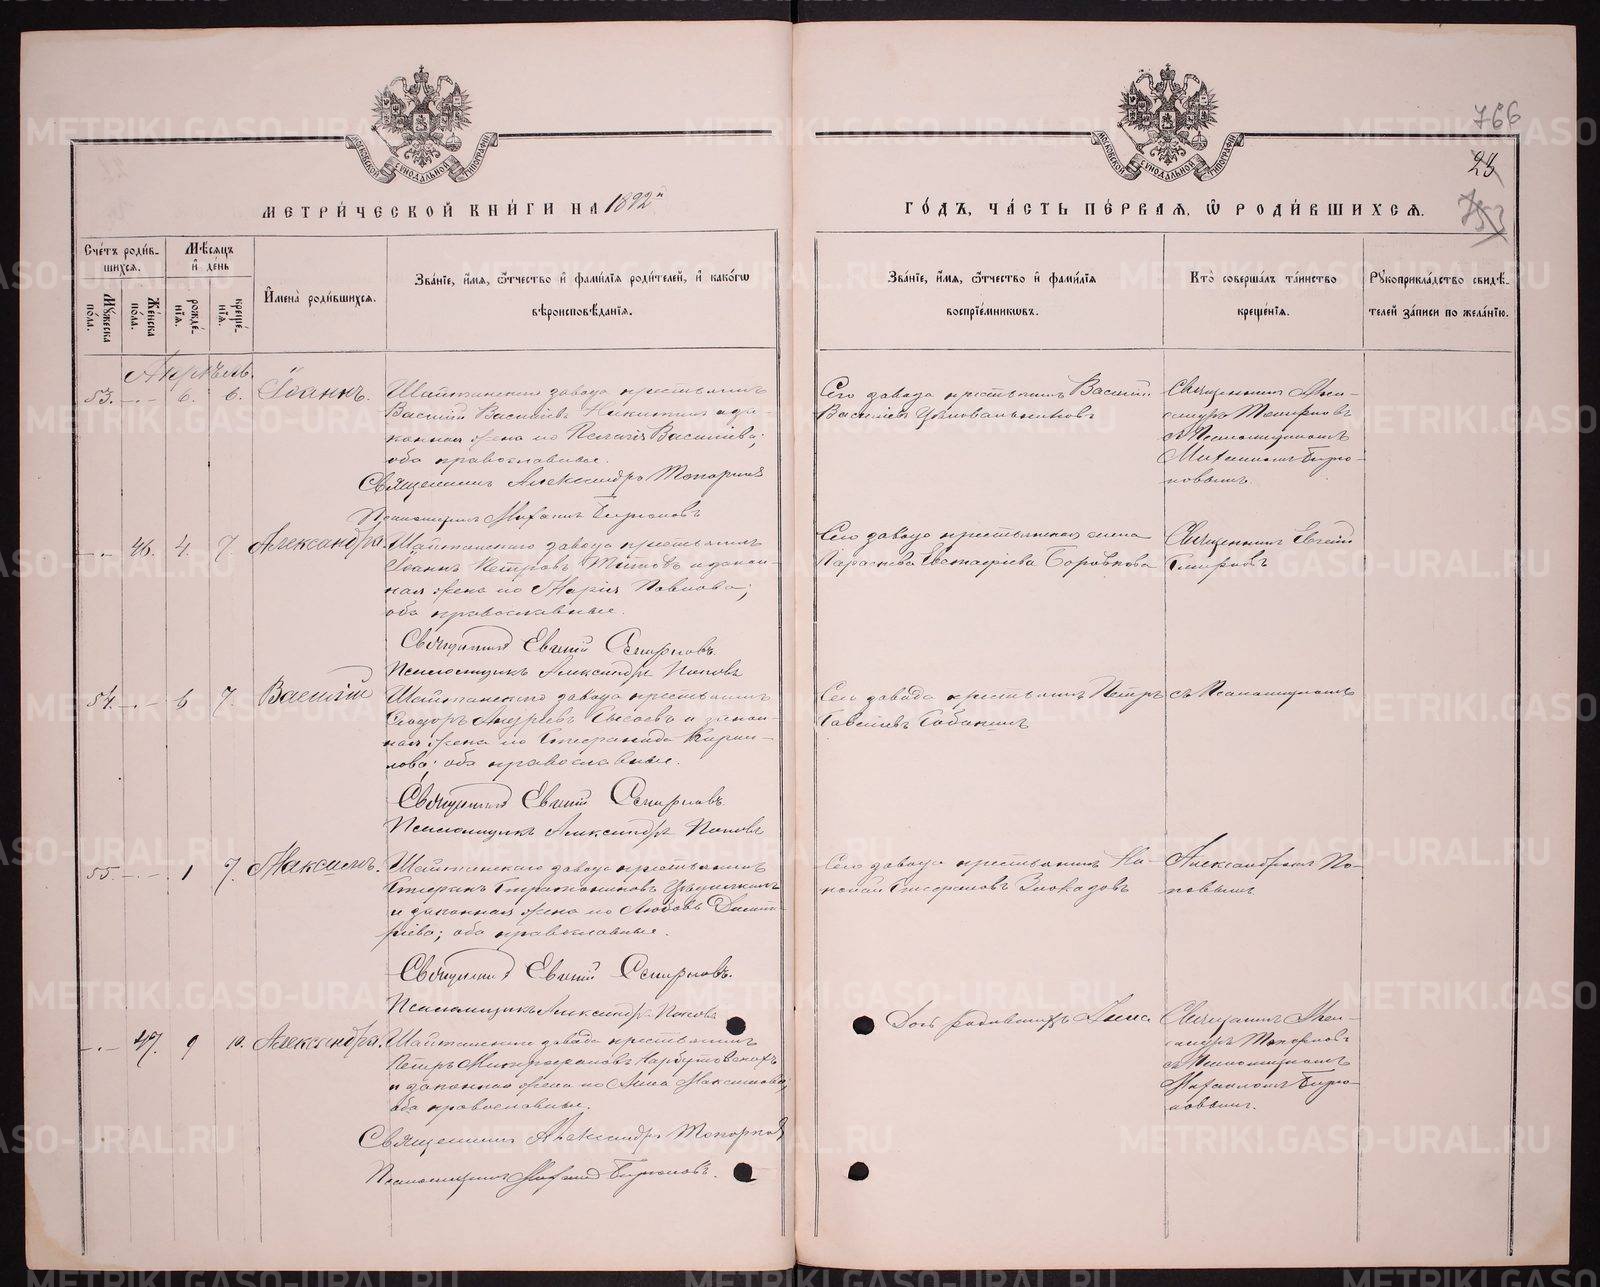 766
25
753
МОСКОВСКОЙ СУНОДАЛЬНОЙ ТИПОГРАФІИ
МОСКОВСКОЙ СУНОДАЛЬНОЙ ТИПОГРАФІИ
МЕТРИ́ЧЕСКОЙ КНИ́ГИ НА 1892й
ГО́ДЪ, ЧА́СТЬ ПЕ́РВАЯ, Ѡ РОДИ́ВШИХСЯ.
Сче́тъ роди́в-
шихся.
Мѣ́сяцъ
и҆ де́нь
Мꙋ́жеска по́ла.
Же́нска по́ла.
рожде́-
нїѧ.
креще́-
нїѧ.
И҆мена̀ роди́вшихся.
Зва́нїе, и҆́мѧ, ѻ҆́тчество и҆ фами́лїѧ роди́телей, и҆ како́гѡ
вѣроисповѣ́данїѧ.
Зва́нїе, и҆́мѧ, ѻ҆́тчество и҆ фами́лїѧ
воспрїе́мникѡвъ.
Кто̀ соверша́лъ та́инство
креще́нїѧ.
Рꙋкоприкла́дство свидѣ́-
телей за́писи по жела́нїю.
Апрѣль.
53. - - 6. 6. Іоаннъ.
Шайтанскаго завода крестьянинъ
Василій Васильевъ Никитинъ и за-
конная жена его Пелагія Васильева;
оба православные.
Священникъ Александръ Топорковъ
Псаломщикъ Михаилъ Бирюковъ
Сего завода крестьянинъ Василій
Васильевъ
Священникъ Алек-
сандръ Топорковъ
съ Псаломщикомъ
Михаиломъ Бирю-
ковымъ.
- - 46. 4. 7. Александра.
Шайтанскаго завода крестьянинъ
Іоаннъ Петровъ Титовъ и закон-
ная жена его Марія Павлова;
оба православные.
Священникъ Евгеній Смирновъ.
Псаломщикъ Александръ Поповъ
Сего завода крестьянская
Параскева Боровкова
Священникъ Евгеній
Смирновъ
54. - - 6 7. Василій
Шайтанскаго завода крестьянинъ
Ѳеодоръ Андреевъ Сысоевъ и закон-
ная жена его Стефанида Кирил-
лова; оба православные.
Священникъ Евгеній Смирновъ.
Псаломщикъ Александръ Поповъ
Сего завода крестьянинъ Петръ
Савельевъ Собакинъ
съ Псаломщикомъ
55. - - 1 7. Максимъ.
Шайтанскаго завода крестьянинъ
Стефанъ
и законная жена его Любовь Димит-
ріева; оба православные.
Священникъ Евгеній Смирновъ.
Псаломщикъ Александръ Поповъ
Сего завода крестьянинъ Ни-
колай Стефановъ Злоказовъ
Александромъ По-
повымъ.
- - 47. 9 10. Александра.
Шайтанскаго завода крестьянинъ
Петръ Митрофановъ Нарбутовскихъ
и законная жена его Анна Максимова;
оба православные.
Священникъ Александръ Топорковъ
Псаломщикъ Михаилъ Бирюковъ.
Дочь Анна
Священникъ Алек-
сандръ Топорковъ
съ Псаломщикомъ
Михаиломъ Бирю-
ковымъ.
METRIKI.GASO-URAL.RU